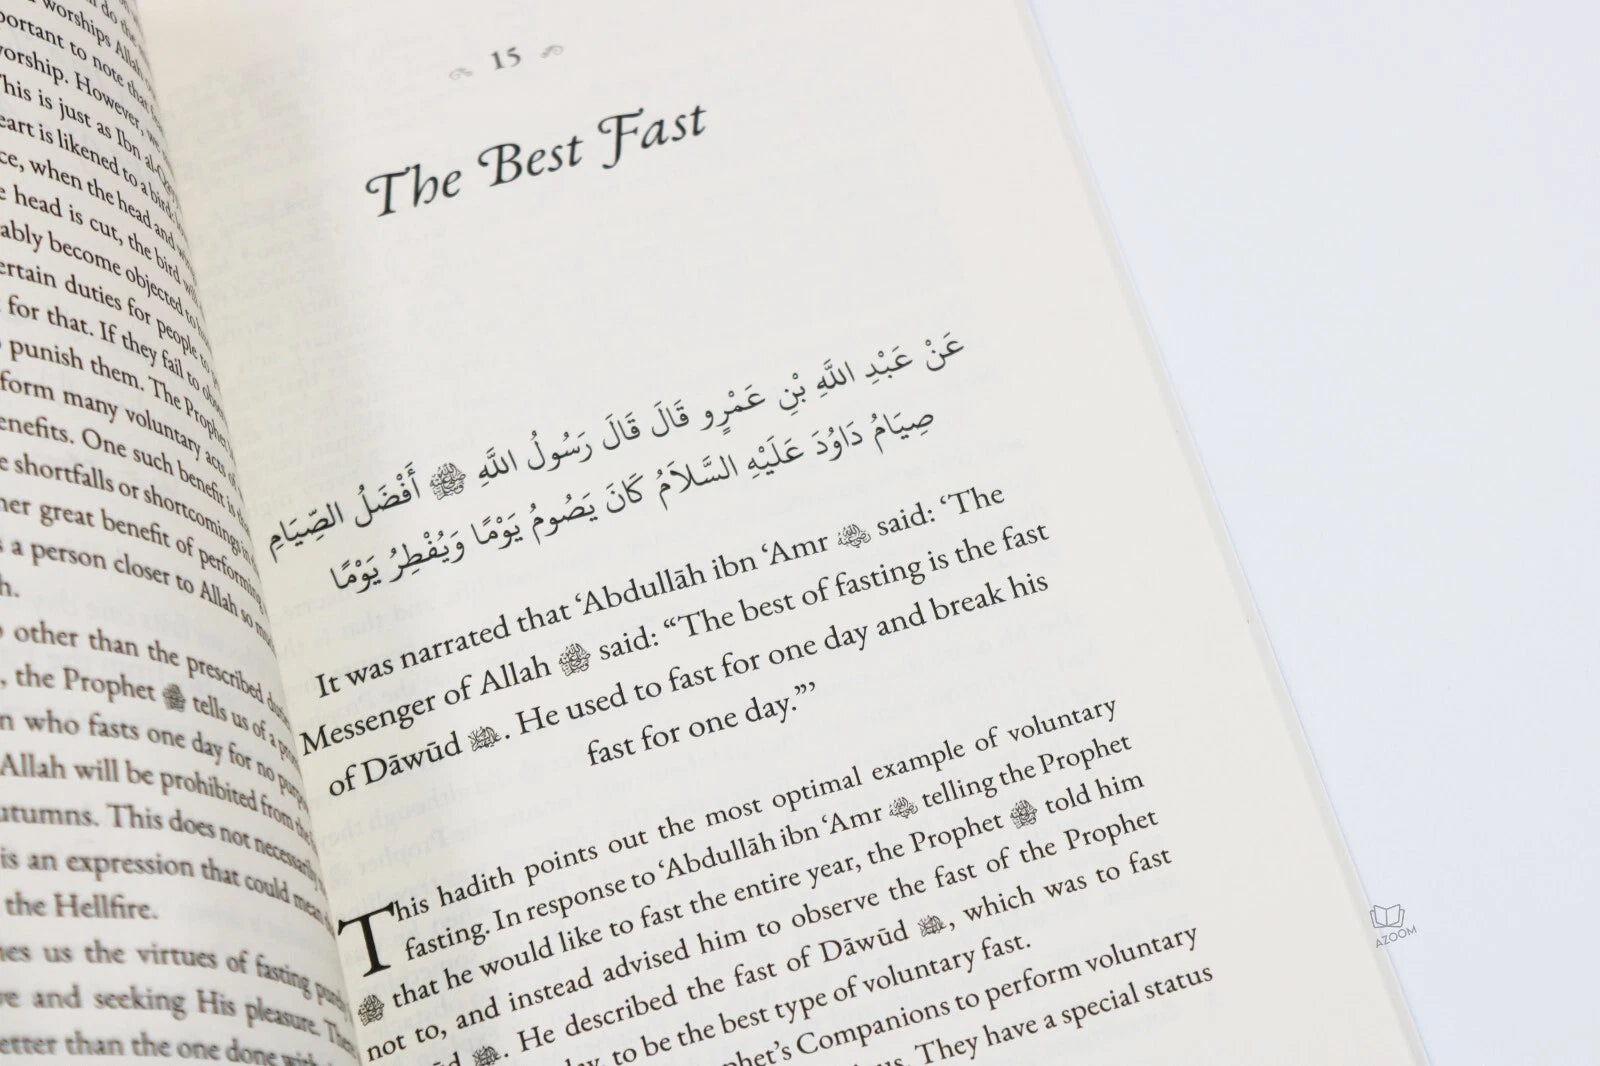 do the
worships Allah
portant to note that
worship. However, we
This is just as Ibn
heart is likened to a bird:
ce, when the head and
e head is cut, the bird will
ably become objected to
ertain duties for people to
for that. If they fail to
punish them. The Prophet
form many voluntary acts
enefits. One such benefit is
e shortfalls or shortcomings in
her great benefit of performing
s a person closer to Allah so
h.
other than the prescribed
, the Prophet ﷺ tells us of a
n who fasts one day for no
Allah will be prohibited from the
utumns. This does not necessarily
is an expression that could mean
the Hellfire.
hes us the virtues of fasting purely
ve and seeking His pleasure.
etter than the one done
15
The Best Fast
عَنْ عَبْدِ اللَّهِ بْنِ عَمْرٍو قَالَ قَالَ رَسُولُ اللَّهِ ﷺ أَفْضَلُ الصِّيَامِ
صِيَامُ دَاوُدَ عَلَيْهِ السَّلَامُ كَانَ يَصُومُ يَوْمًا وَيُفْطِرُ يَوْمًا
It was narrated that ‘Abdullāh ibn ‘Amr said: ‘The
Messenger of Allah ﷺ said: “The best of fasting is the fast
of Dāwūd. He used to fast for one day and break his
fast for one day.”’
This hadith points out the most optimal example of voluntary
fasting. In response to ‘Abdullāh ibn ‘Amr telling the Prophet
ﷺ that he would like to fast the entire year, the Prophet ﷺ told him
not to, and instead advised him to observe the fast of the Prophet
He described the fast of Dāwūd, which was to fast
to be the best type of voluntary fast.
phet’s Companions to perform voluntary
They have a special status
AZOOM